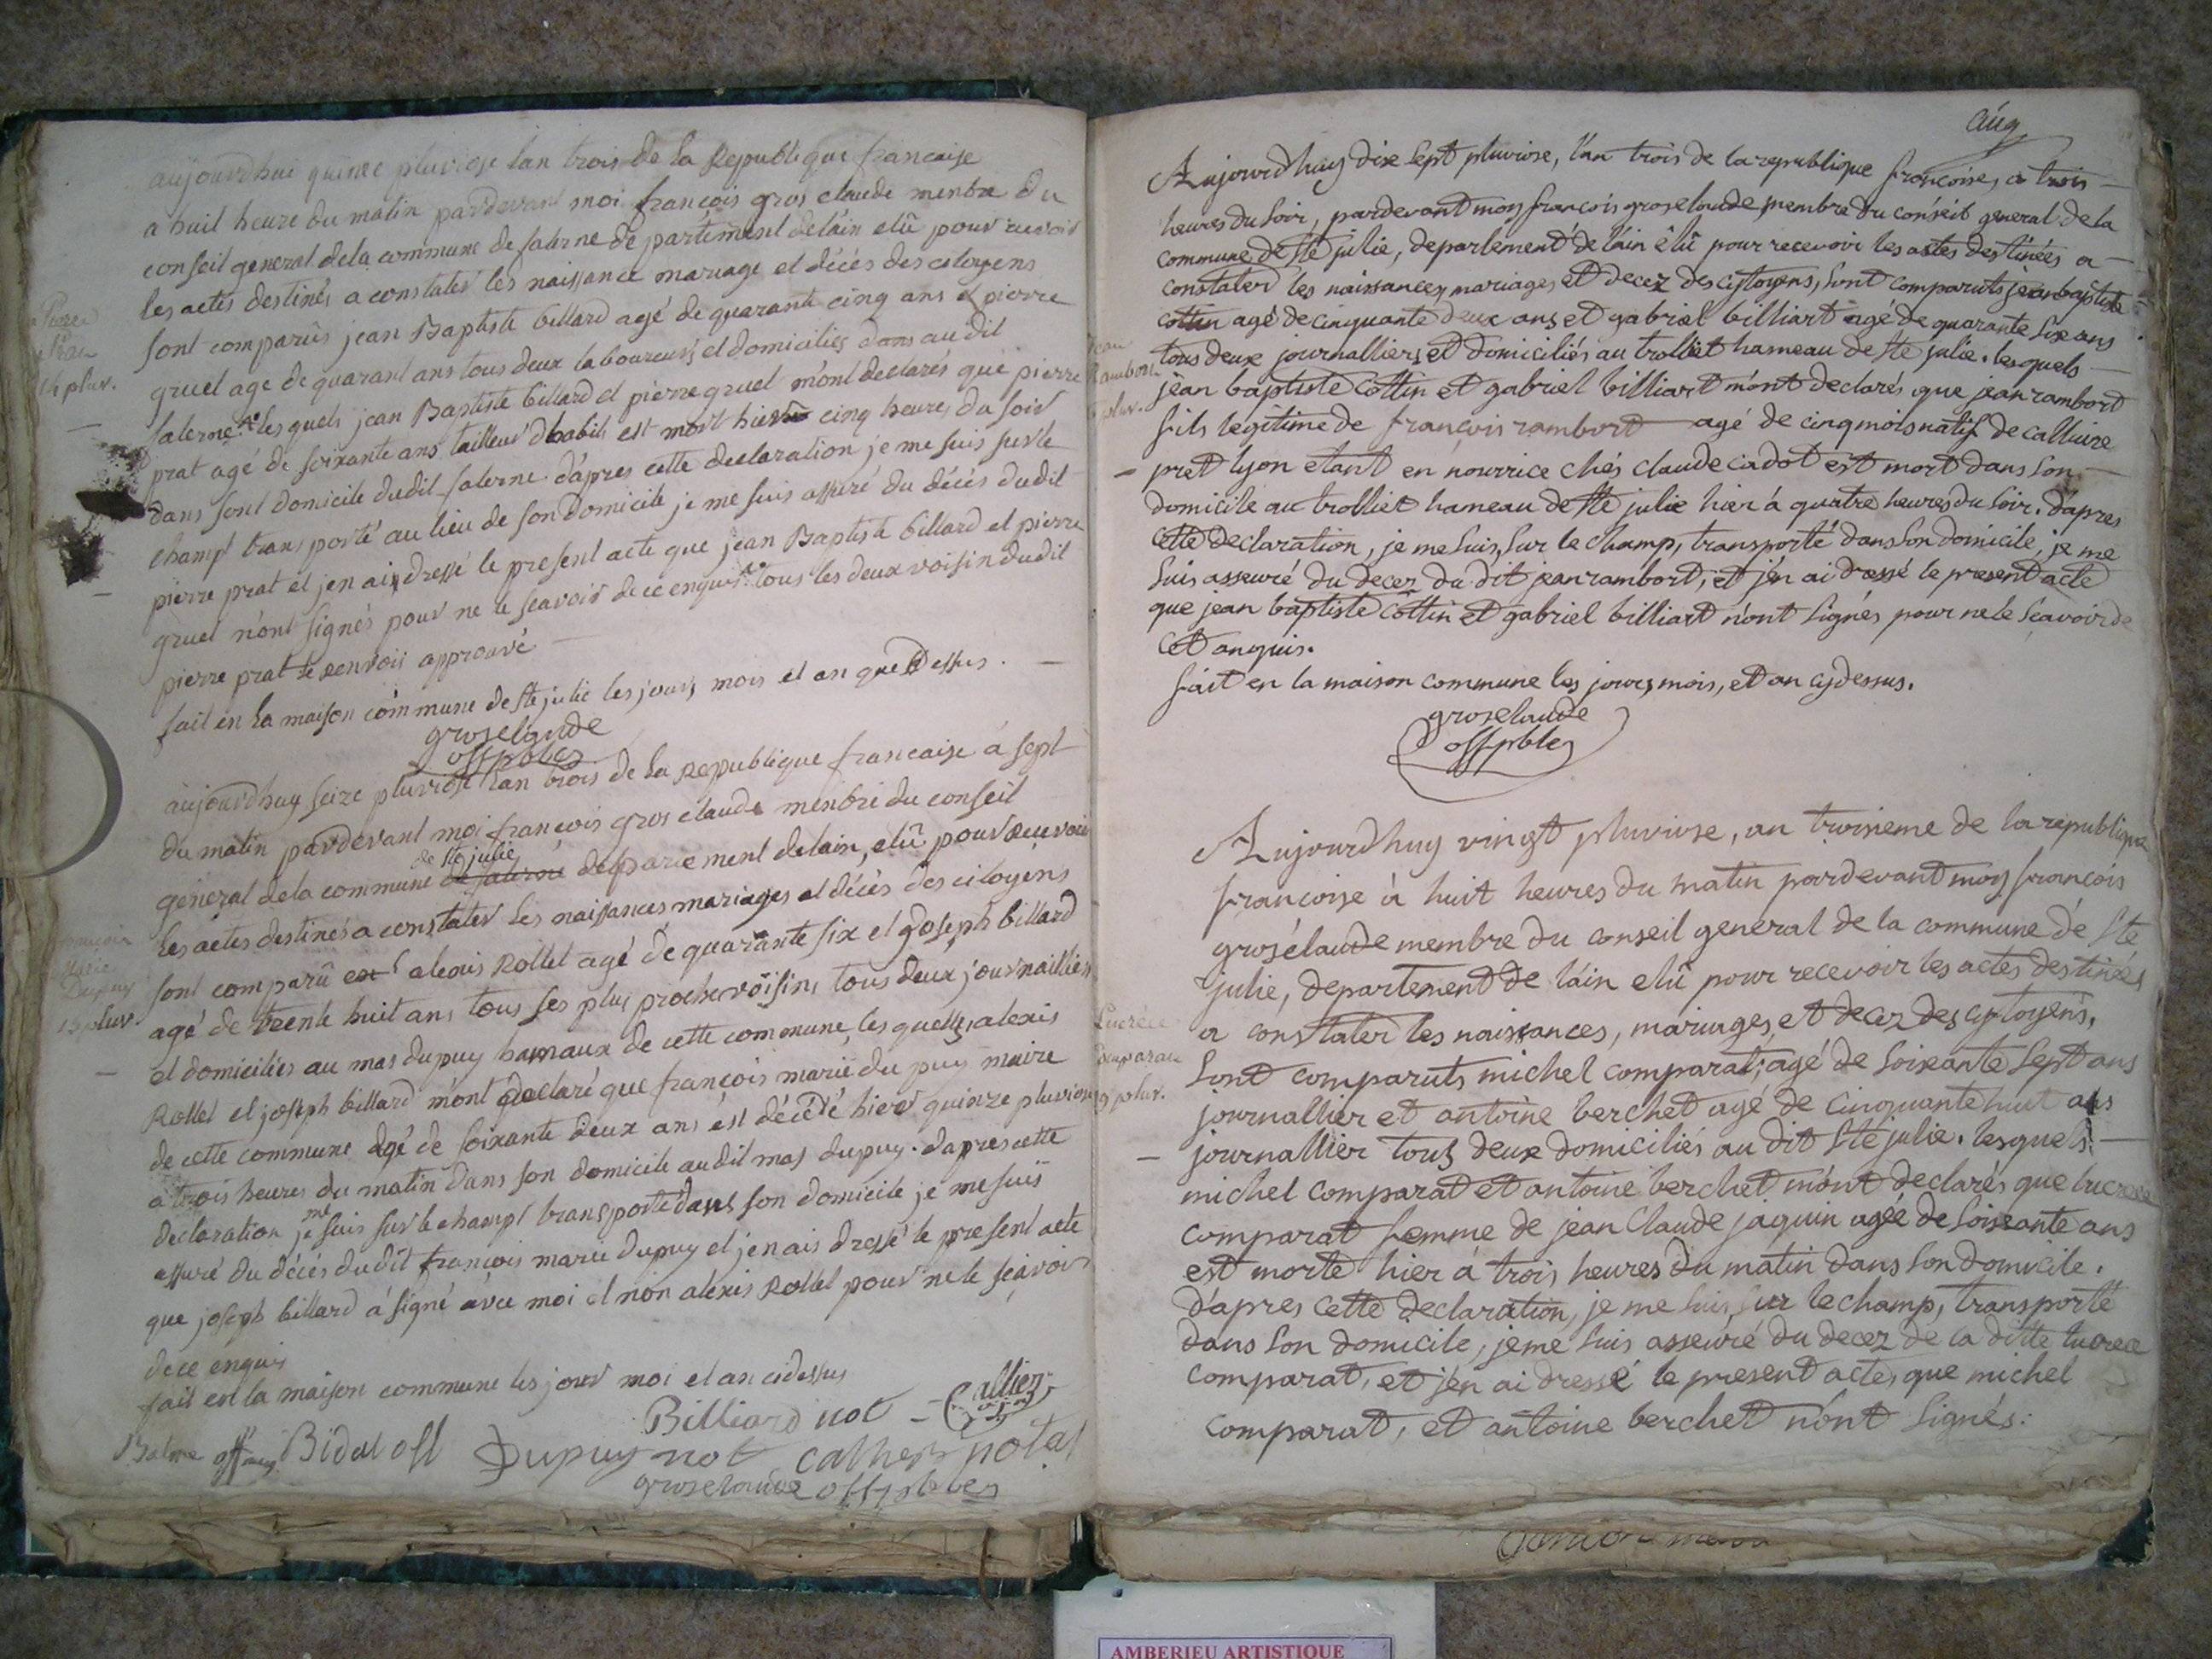 aujourdhui quinze pluviose lan trois de la Republique francaise
a huit heure du matin pardevant moi françois gros claude menbre du
conseil general dela commune de salerne département delain elû pour recevoir
les actes destinés a constater les naissance mariage et décés des citoyens
sont comparûs jean Baptiste billard agé de quarante cinq ans et pierre
gruel age de quarant ans tous deux laboureurs et domiciliés dans au dit
salerne les quels jean Baptiste billard et pierre gruel m'ont declarés que pierre
prat agé de soixante ans tailleur dhabits est mort hier cinq heures du soir
dans sont domicile dudit salerne d'apres cette declaration je me suis sur le
champt transporté au lieu de son domicile je me suis assuré du décés dudit
pierre prat et jen ai dressé le present acte que jean Baptiste billard et pierre
gruel n'ont signés pour ne le scavoir de ce enquis tous les deux voisin dudit
pierre prat le renvois approuvé
fait en la maison commune de ste julie les jours mois et an que dessus.
groselaude
offpbles
Pierre
Prat
14 pluv.
aujourdhuy seize pluviose lan trois de la Republique francaise á sept
du matin pardevant moi françois gros claude menbre du conseil
de ste julie
géneral dela commune de salerne departement delain, elû pour recevoir
les actes destinés a constater les naissances mariages et décés des citoyens
sont comparû alexis Rollet agé de quarante six et joseph billard
agé de trente huit ans tous ses plus proche voisins tous deux journailliers
et domiciliés au mas dupuy hamaux de cette commune, les quells alexis
Rollet et joseph billard m'ont declaré que françois marie du puy maire
de cette commune agé de soixante deux ans est décédé hier quinze pluviose
a trois heures du matin dans son domicile audit mas dupuy. dapres cette
me
declaration je suis sur le champt transporté dans son domicile je me suis
assuré du décés dudit françois marie dupuy et jen ais dressé le present acte
que joseph billard á signé avec moi et non aléxis Rollet pour ne le scavoir
de ce enquis
fait en la maison commune les jour moi et an cidessus
Marie
Dupuy
15 pluv
Billiard not
Balme Bidal off Dupuy not
groselaude offpbles
Aujourdhuy dix sept pluviose, l'an trois de la republique françoise, a trois
heures du soir, pardevant moy françois groselaude membre du conseil general de la
commune de Ste julie, departement de l'ain êlû pour recevoir les actes destinées a
constater les naissances, mariages, et decez des cytoyens, sont comparuts jean baptiste
cottin agé de cinquante deux ans et gabriel billiart agé de quarante six ans
tous deux journalliers et domiciliés au trolliet hameau de Ste julie. lesquels
jean baptiste cottin et gabriel billiart m'ont declarés que jean rambort
fils legitime de françois rambort agé de cinq mois natif de calluire
pret lyon etant en nourrice chés claude cadot est mort dans son
domicile au trolliet hameau de Ste julie hier à quatre heures du soir. d'apres
cette declaration, je me suis, sur le champ, transporté dans son domicile, je me
suis asseuré du decez du dit jean rambort, et j'en ai dressé le present acte
que jean baptiste cottin et gabriel billiart n'ont signés pour ne le sçavoir de
cet anquis.
fait en la maison commune les jours, mois, et an cydessus.
groselaude
offpbles
Jean
Rambort
pluv.
Aujourdhuy vingt pluviose, an troisieme de la republique
françoise à huit heures du matin pardevant moy françois
groselaude membre du conseil general de la commune de Ste
julie, departement de l'ain elû pour recevoir les actes destinés
a constater les naissances, mariages, et decez des cytoyens,
sont comparuts michel comparat, agé de soixante sept ans
journallier et antoine berchet agé de cinquante huit ans
journallier tous deux domiciliés au dit Ste julie. lesquels
michel comparat et antoine berchet m'ont declarés que lucrece
comparat femme de jean Claude jaquin agée de soixante ans
est morte hier à trois heures du matin dans son domicile.
d'apres cette declaration, je me suis, sur le champ, transporté
dans son domicile, je me suis asseuré du decez de la ditte lucrece
comparat, et j'en ai dressé le present acte, que michel
comparat, et antoine berchet n'ont signés:
Lucrèce
Comparat
19 pluv.
AMBERIEU ARTISTIQUE